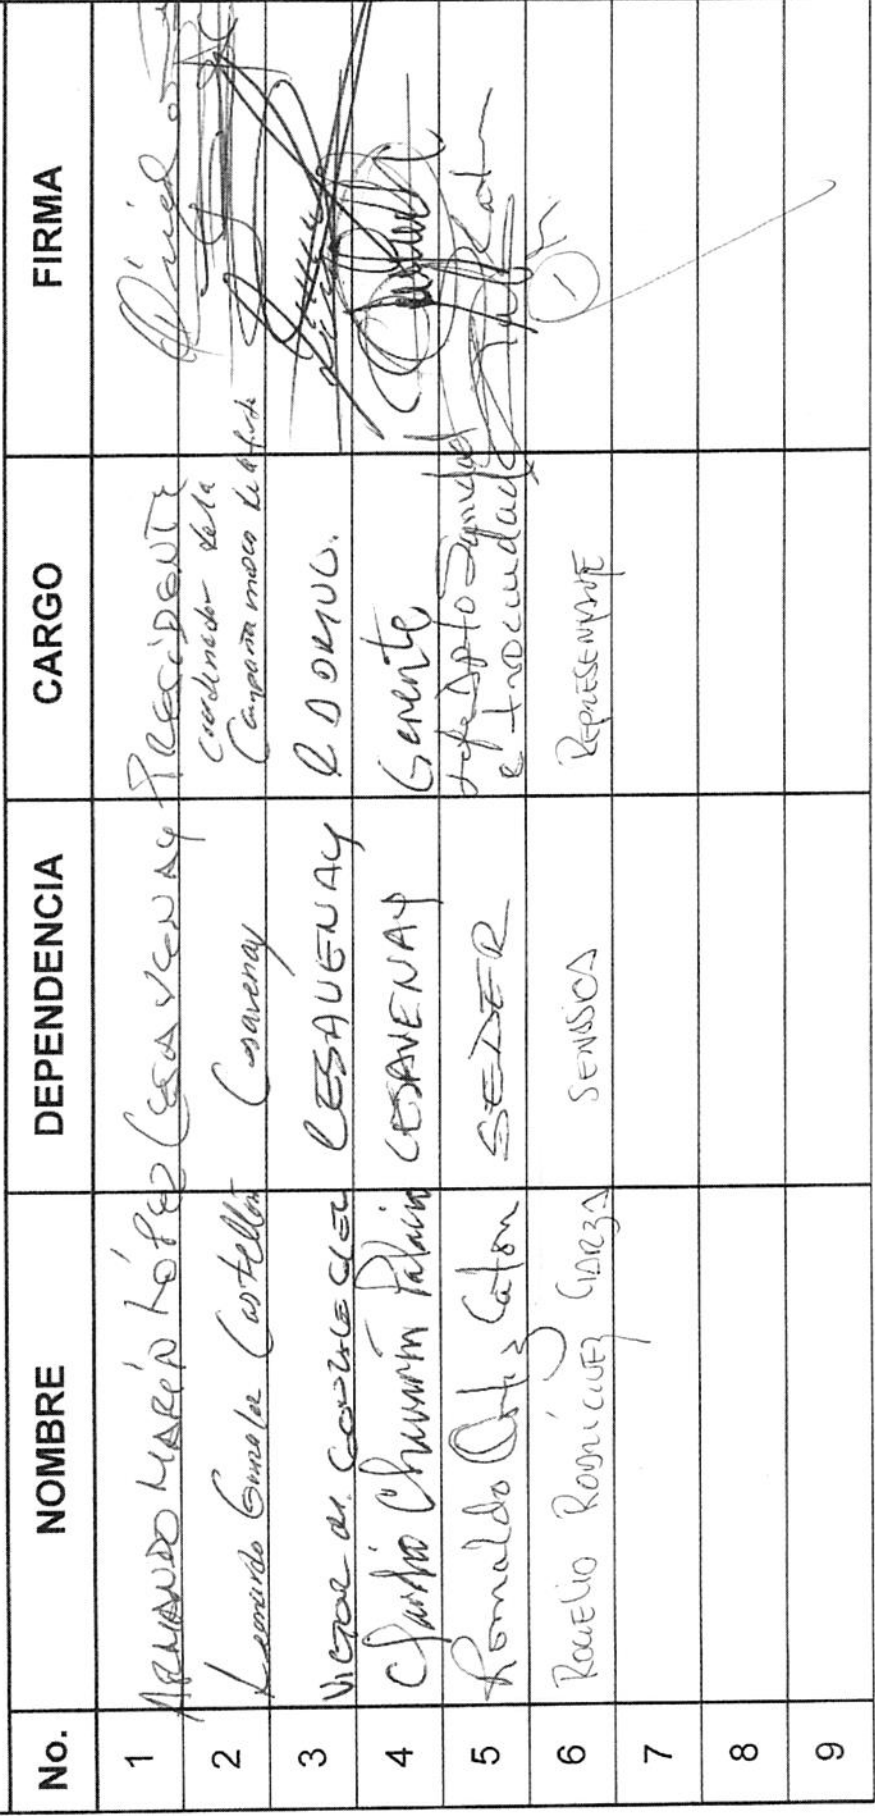 No. NOMBRE DEPENDENCIA CARGO FIRMA
1 ARMANDO MARÍN LÓPEZ CESAVENAY PRECIDENTE
2 Leonardo Gonzalez Castellón Cesavenay Coordinador de la
Campaña moscas de la fruta
3 VICTOR M. CESAVENAY
4 Claudio Chavarín Palacio CESAVENAY Gerente
5 Romualdo Ortiz Catón SEDER Jefe Dpto Sanidad
e Inocuidad
6 ROGELIO RODRÍGUEZ GARZA SENASICA REPRESENTANTE
7
8
9